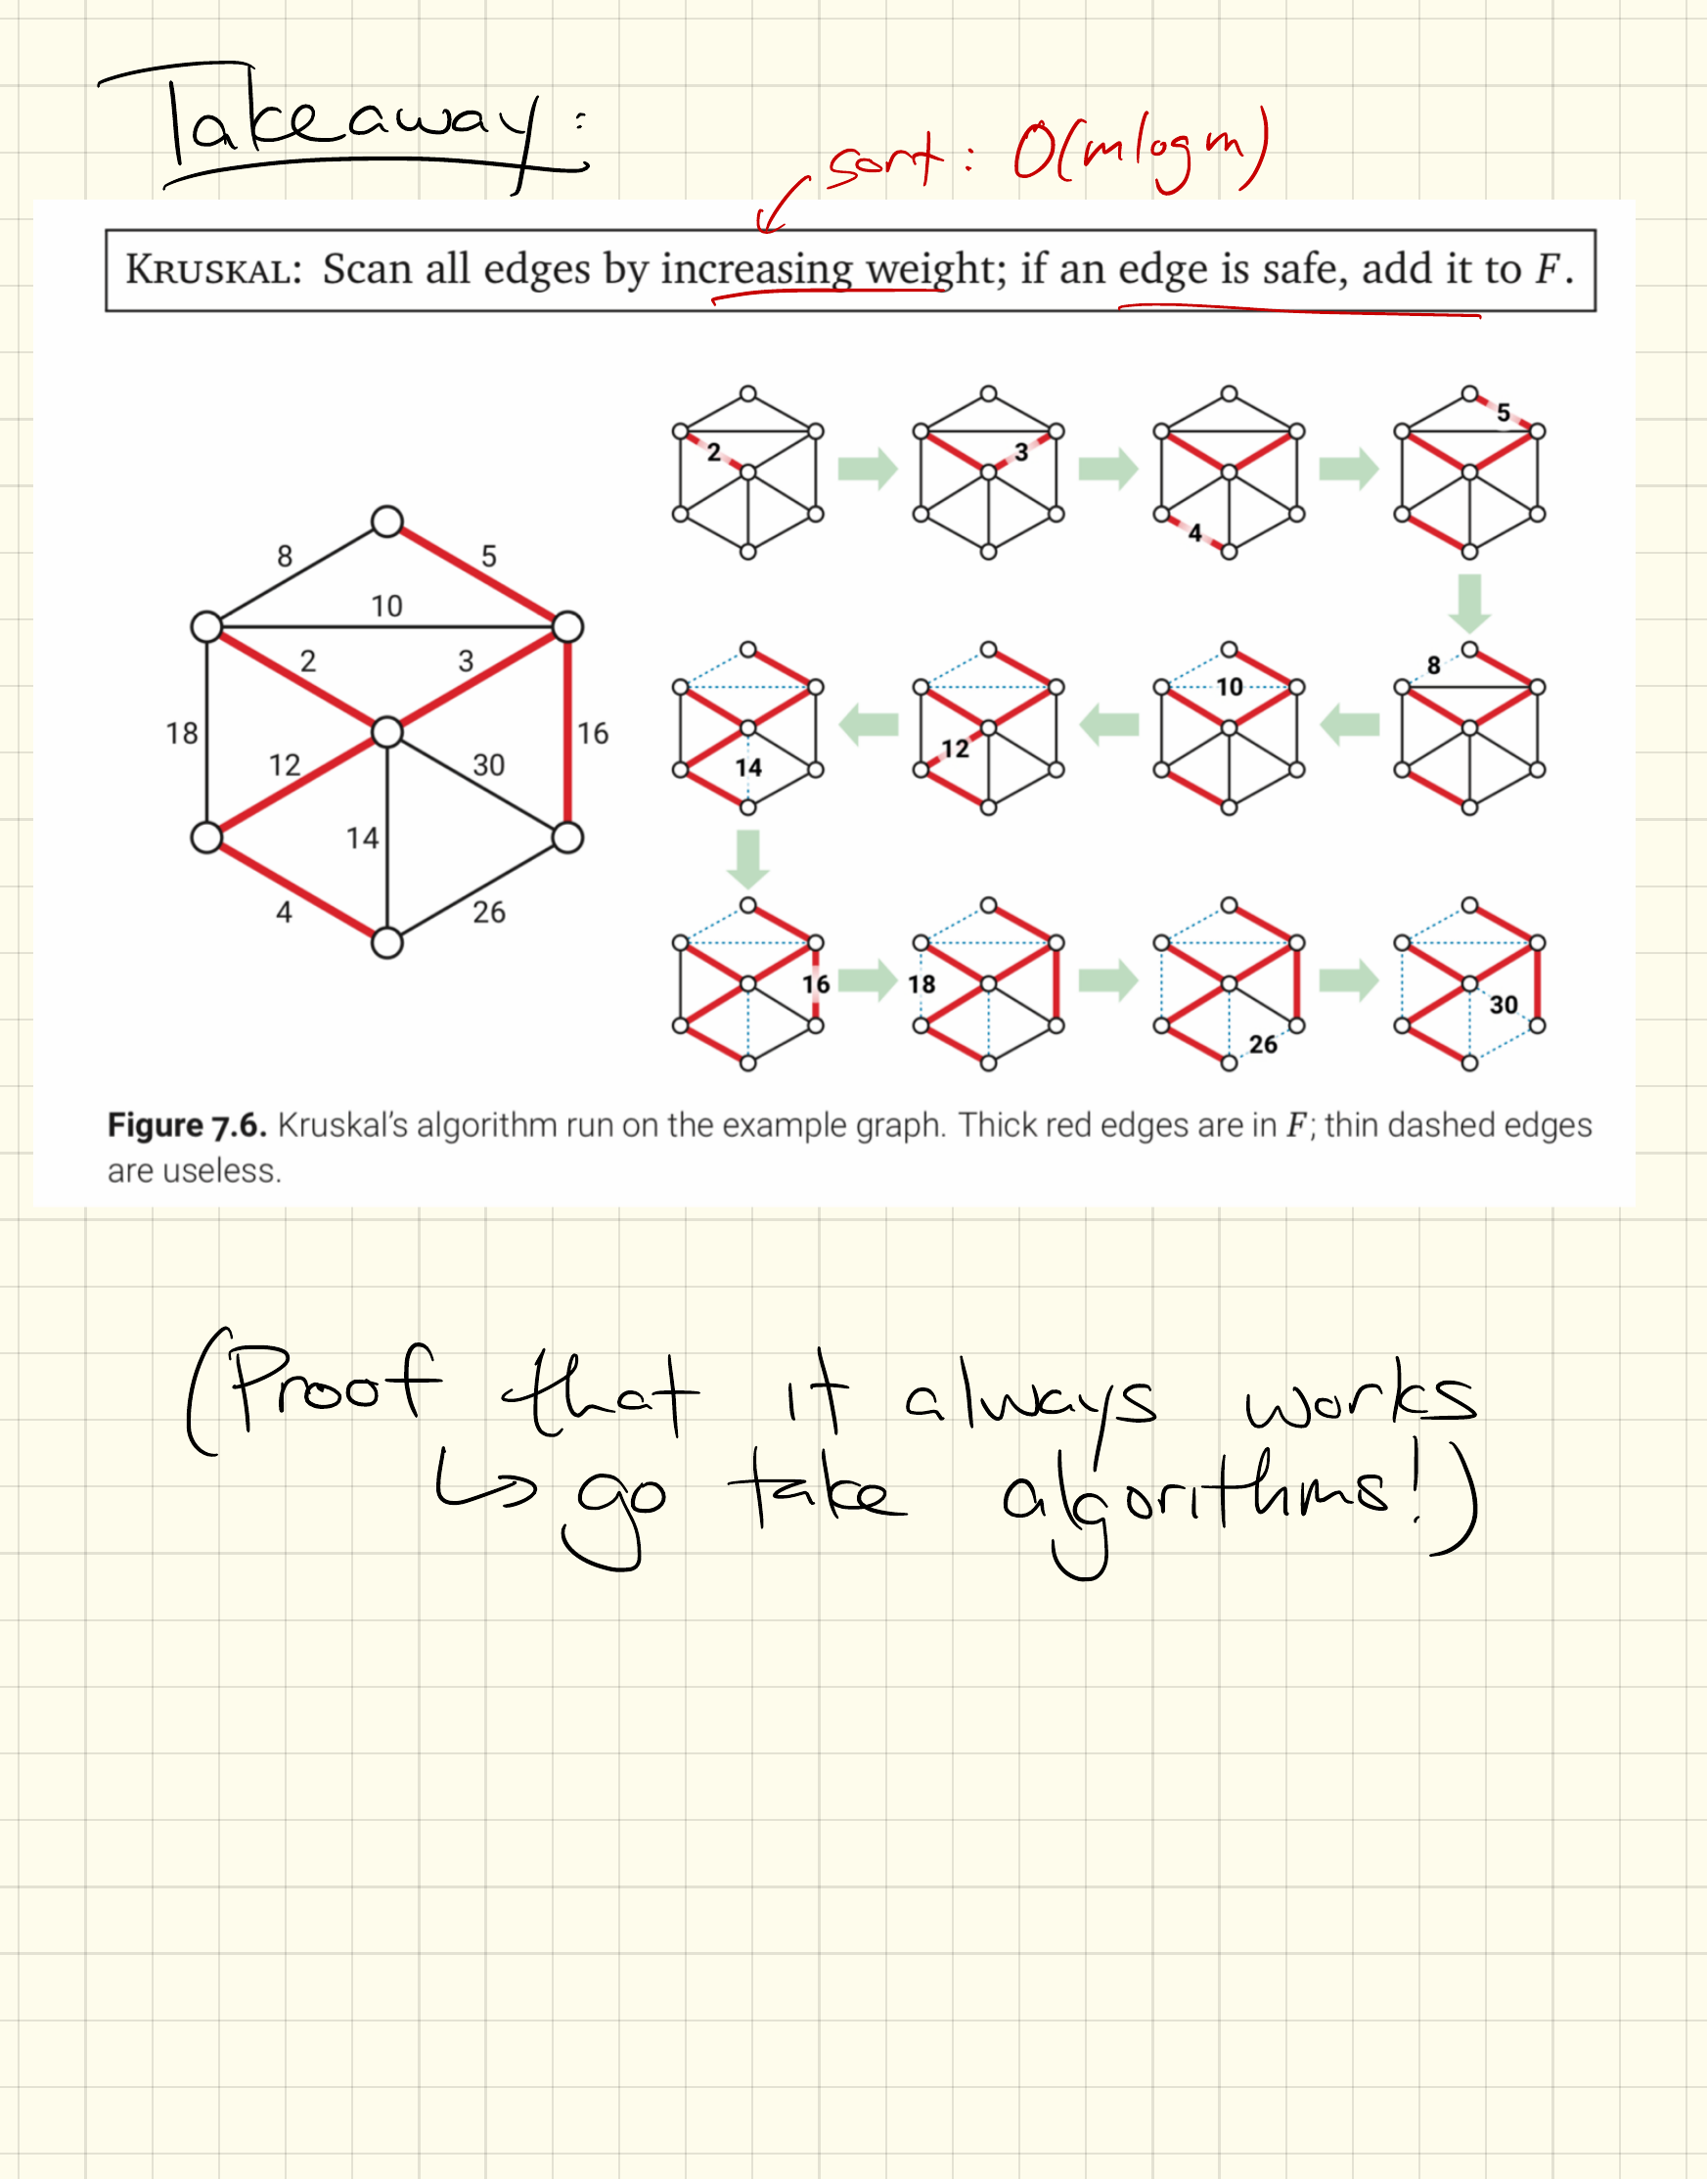 Takeaway:
sort: O(m log m)
KRUSKAL: Scan all edges by increasing weight; if an edge is safe, add it to F.
2
3
4
5
8
5
10
2
3
18
16
12
30
14
4
26
14
12
10
8
16
18
26
30
Figure 7.6. Kruskal's algorithm run on the example graph. Thick red edges are in F; thin dashed edges
are useless.
(Proof that it always works
↳ go take algorithms!)